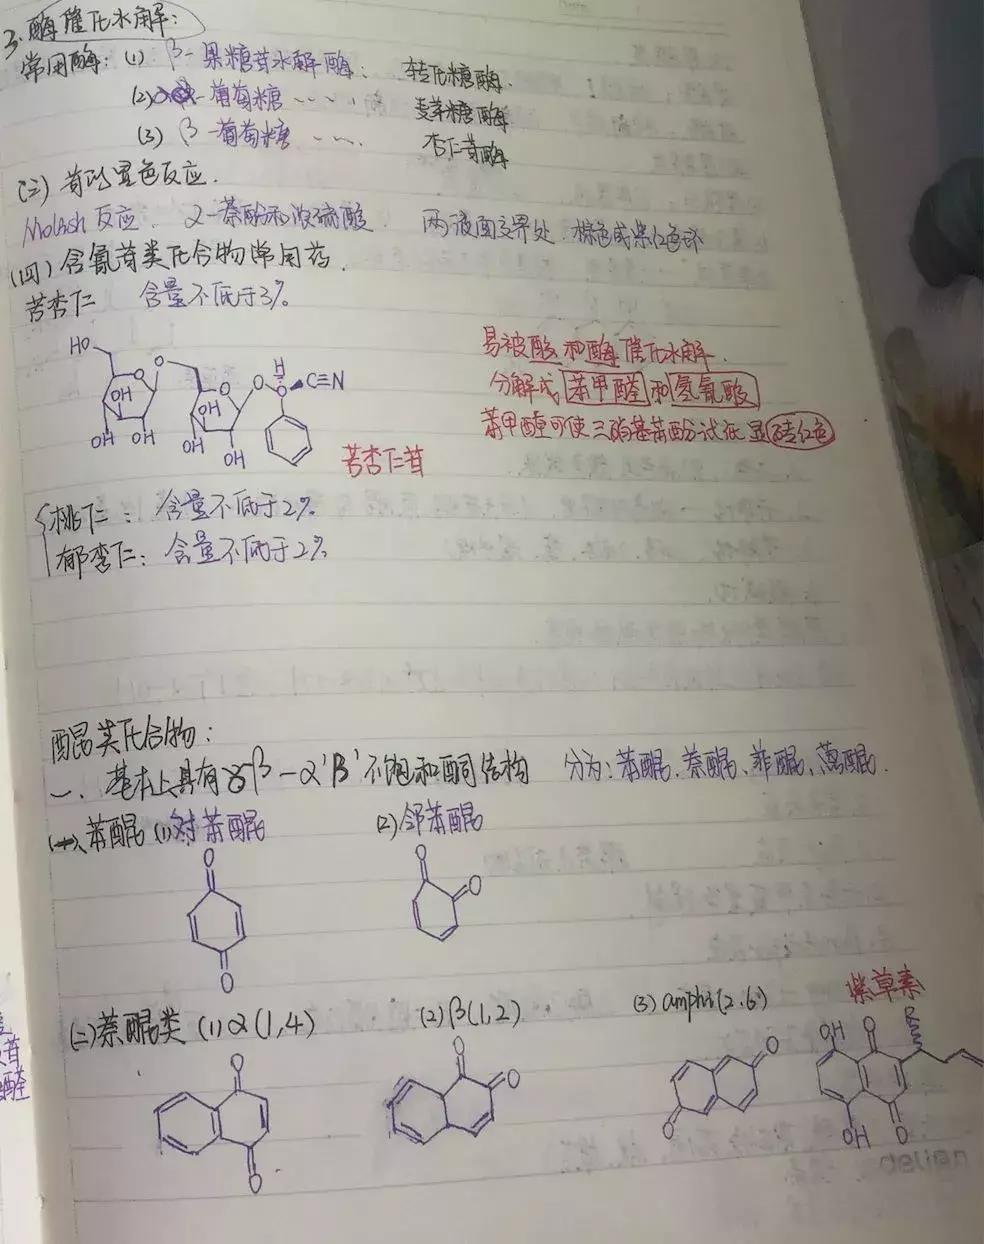 3. 酶催化水解:
常用酶: (1) β-果糖苷水解酶: 转化糖酶.
(2) α-葡萄糖 ..... 麦芽糖酶
(3) β-葡萄糖 ..... 杏仁苷酶
(三) 苷的显色反应.
Molish 反应. α-萘酚和浓硫酸. 两液面交界处. 棕色或紫红色环
(四) 含氰苷类化合物常用药.
苦杏仁 含量不低于3%.
HO O O O O H C≡N
OH OH
OH OH OH OH
易被酸和酶催化水解.
分解成 苯甲醛 和 氢氰酸
苯甲醛可使三硝基苯酚试纸显砖红色
苦杏仁苷
桃仁: 含量不低于2%.
郁李仁: 含量不低于2%
醌类化合物:
一、基本上具有αβ-α'β'不饱和酮结构 分为: 苯醌、萘醌、菲醌、蒽醌.
(一)、苯醌 (1)对苯醌 (2)邻苯醌
O O O
O
(二)萘醌类 (1)α(1,4) (2)β(1,2) (3)amphi(2.6) 紫草素
O O O O O OH O R
O OH O
delien
苷
醛